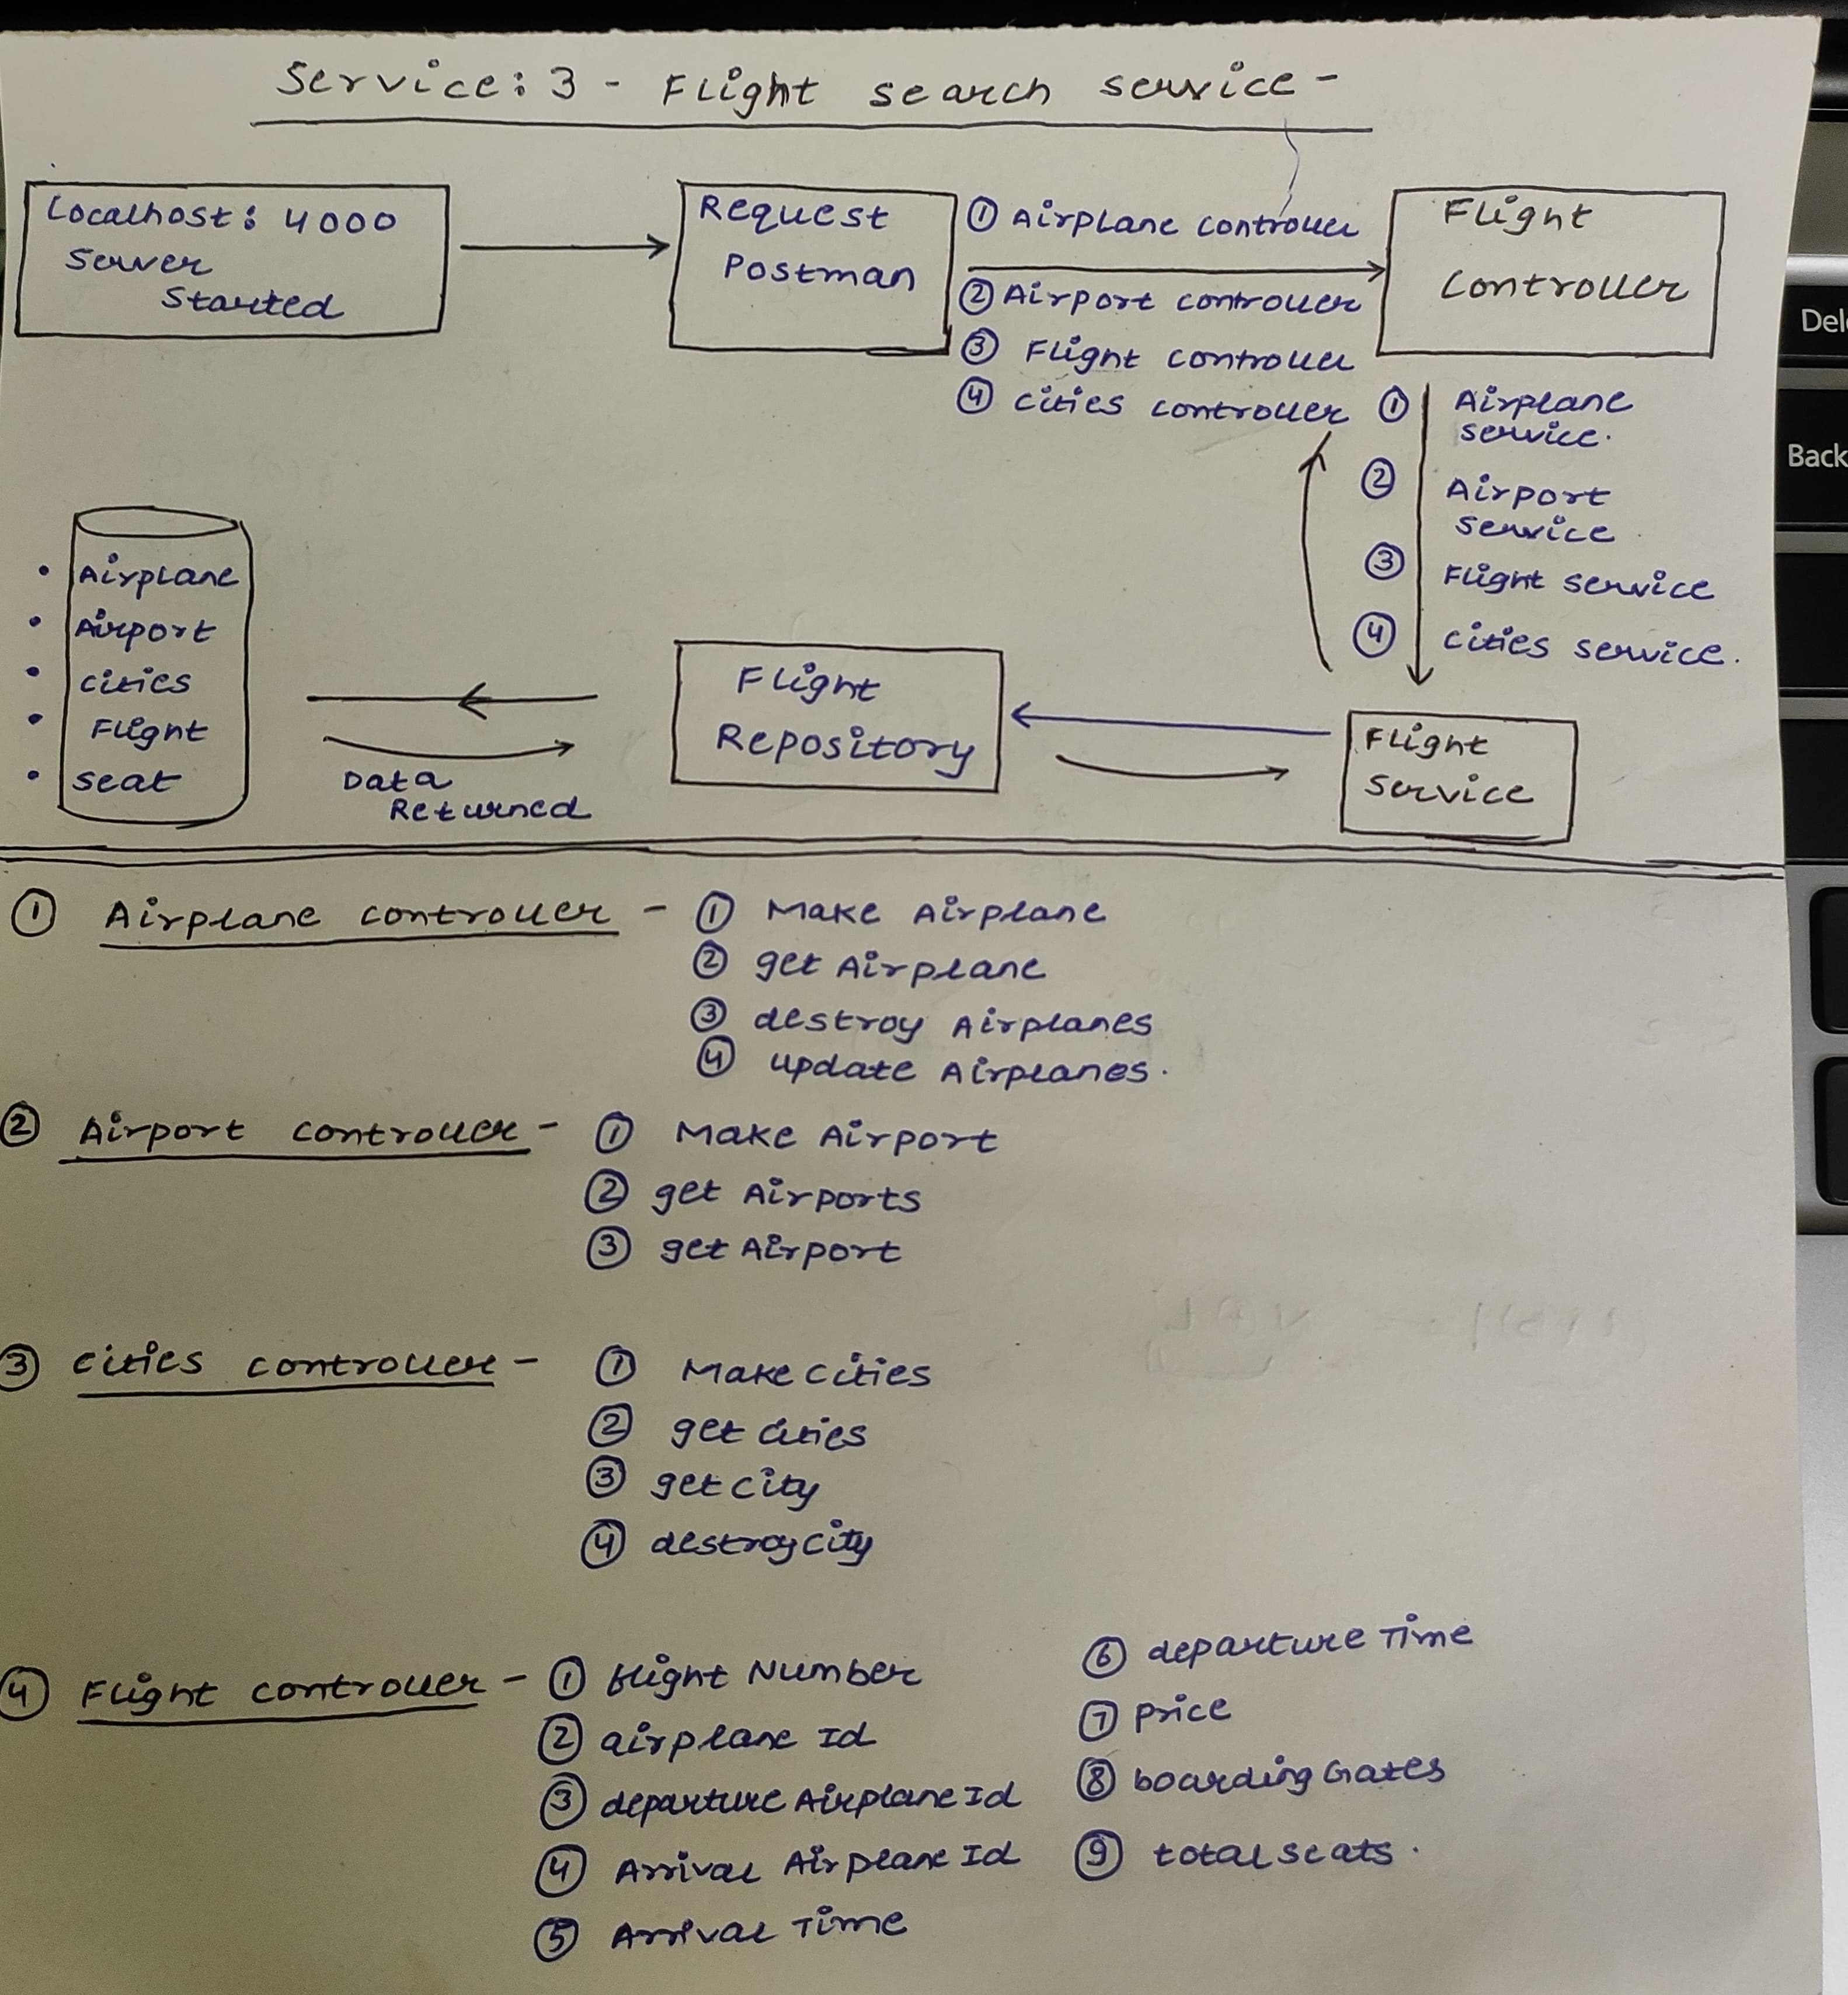 Service: 3 - Flight search service -
Localhost: 4000
Server
Started
Request
Postman
① Airplane controller
② Airport controller
③ Flight controller
④ cities controller
Flight
Controller
① Airplane
service.
② Airport
service
③ Flight service
④ cities service.
• Airplane
• Airport
• cities
• Flight
• seat
Data
Returned
Flight
Repository
Flight
Service
① Airplane controller - ① Make Airplane
② get Airplane
③ destroy Airplanes
④ update Airplanes.
② Airport controller - ① Make Airport
② get Airports
③ get Airport
③ cities controller - ① Make cities
② get cities
③ get city
④ destroy city
④ Flight controller - ① flight Number
② airplane Id
③ departure Airplane Id
④ Arrival Airplane Id
⑤ Arrival Time
⑥ departure Time
⑦ price
⑧ boarding Gates
⑨ total seats.
Del
Back